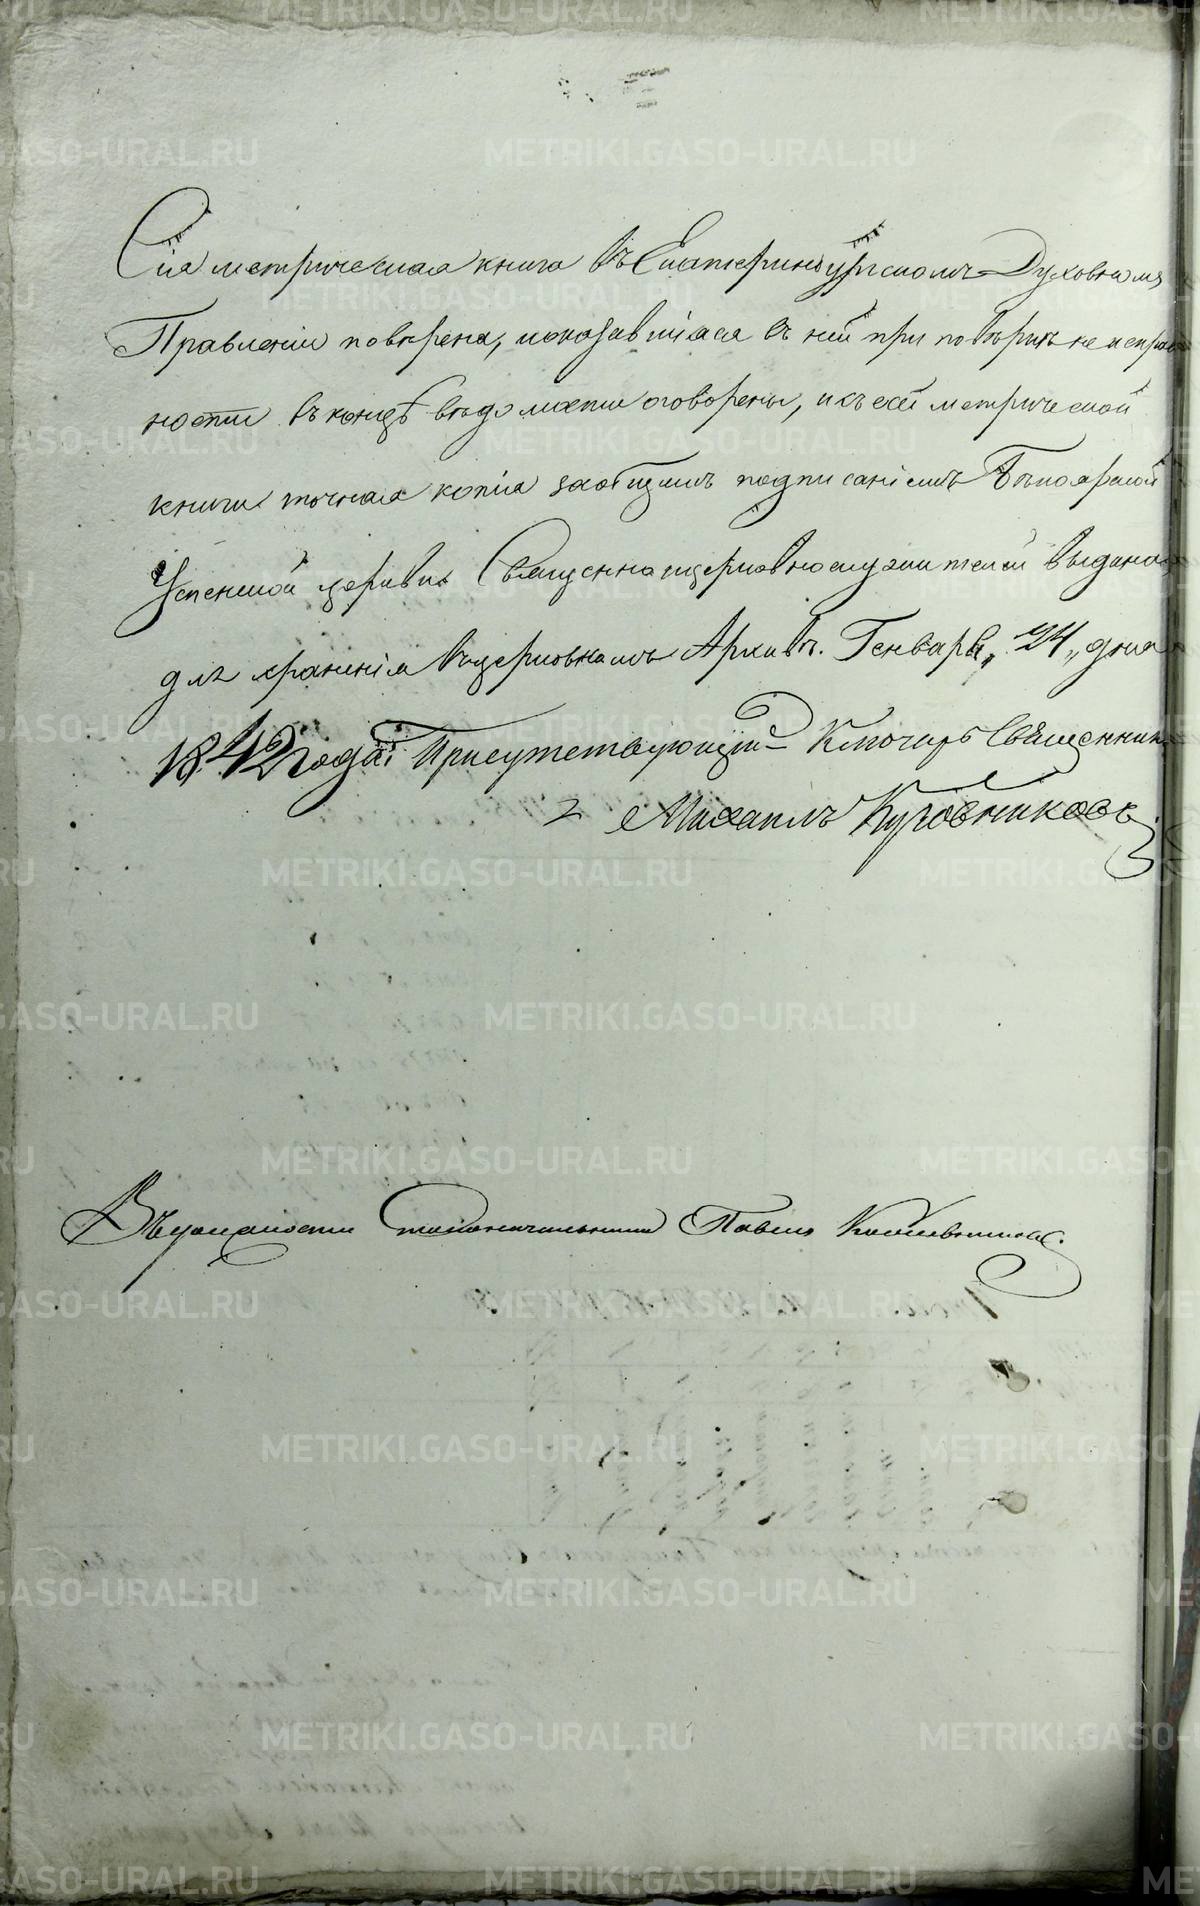 Сія метрическая книга въ Екатеринбургскомъ Духовномъ
Правленіи поверена, и оказавшіяся въ ней при повѣркѣ неисправ
ности въ концѣ вѣдомости оговорены, и съ сей метрической
книги точная копія за общимъ подписаніемъ Бѣлоярской
Успенской церкви Священно церковнослужителей выдана
для храненія въ церковномъ Архивѣ. Генваря „24„ дня
1842 года. Присутствующій Ключарь Священник
Михаилъ
Въ должности Столоначальника Павелъ
METRIKI.GASO-URAL.RU